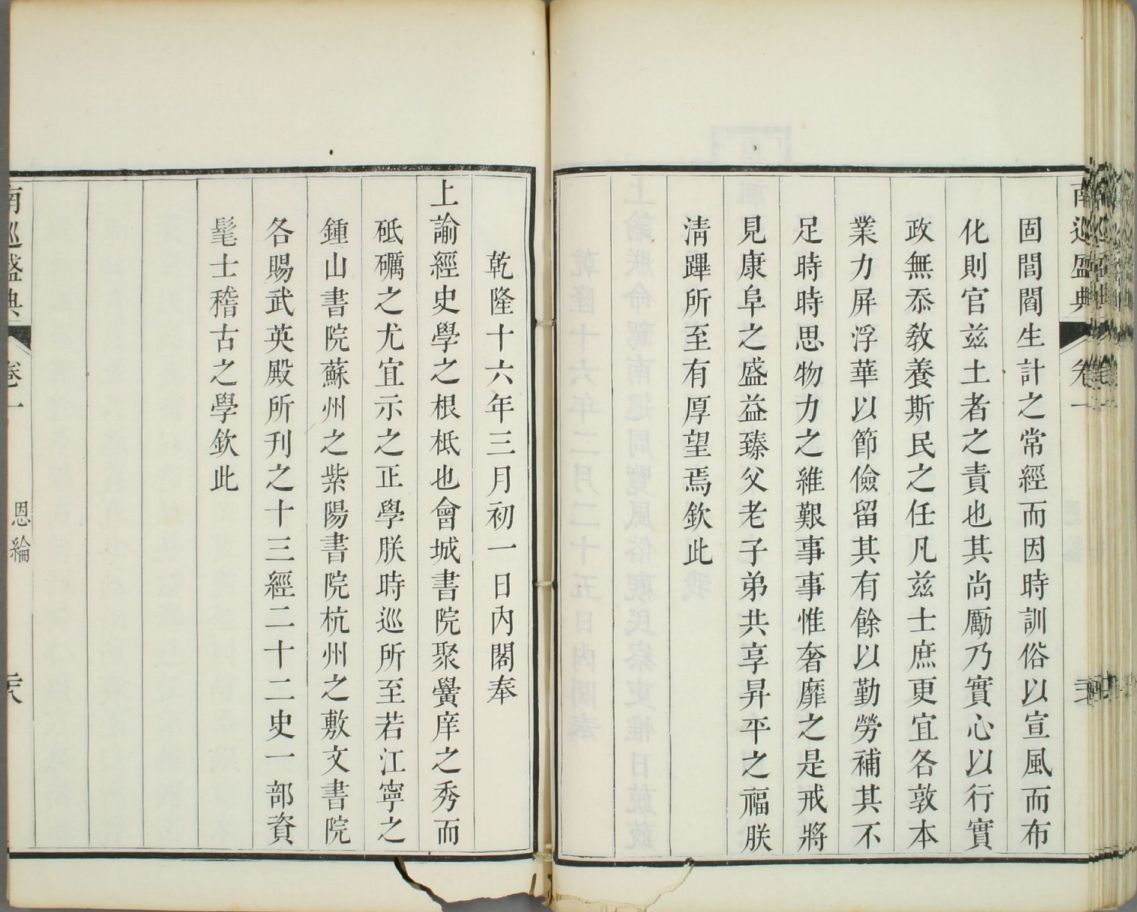 固閭閻生計之常經而因時訓俗以宣風而布
化則官茲土者之責也其尚勵乃實心以行實
政無忝教養斯民之任凡茲士庶更宜各敦本
業力屏浮華以節儉留其有餘以勤勞補其不
足時時思物力之維艱事事惟奢靡之是戒將
見康阜之盛益臻父老子弟共享昇平之福朕
清蹕所至有厚望焉欽此
乾隆十六年三月初一日內閣奉
上諭經史學之根柢也會城書院聚黌庠之秀而
砥礪之尤宜示之正學朕時巡所至若江寧之
鍾山書院蘇州之紫陽書院杭州之敷文書院
各賜武英殿所刊之十三經二十二史一部資
髦士稽古之學欽此
南巡盛典 卷一 恩綸 六